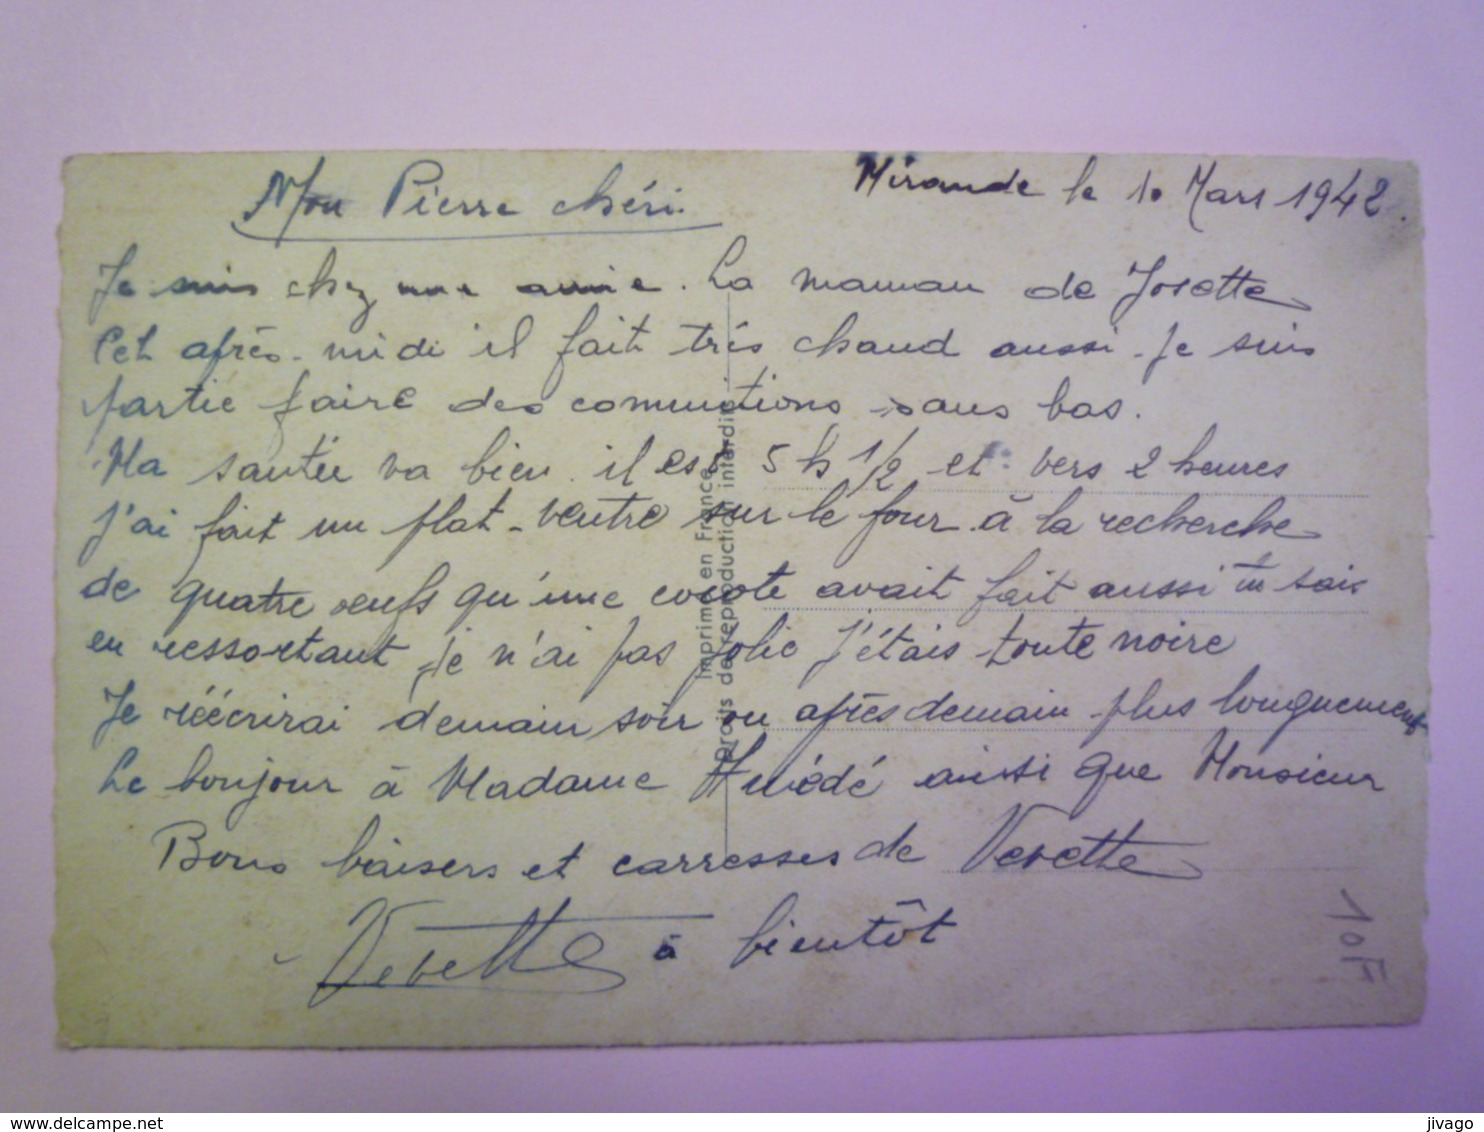 Mirande le 10 Mars 1942.
Mon Pierre chéri.
Je suis chez une amie. La maman de Josette
Cet après-midi il fait très chaud aussi je suis
partie faire des commitions sans bas.
Ma santée va bien. il est 5 h 1/2 et vers 2 heures
j'ai fait un plat-ventre sur le four à la recherche
de quatre oeufs qu'une cocote avait fait aussi tu sais
en ressortant je n'ai pas jolie j'étais toute noire
Je réécrirai demain soir ou après demain plus longuement
Le bonjour à Madame ainsi que Monsieur
Bons baisers et carresses de Vevette
Vevette à bientôt
10F
Imprimé en France
Droits de reproduction interdits
www.delcampe.net
jivago